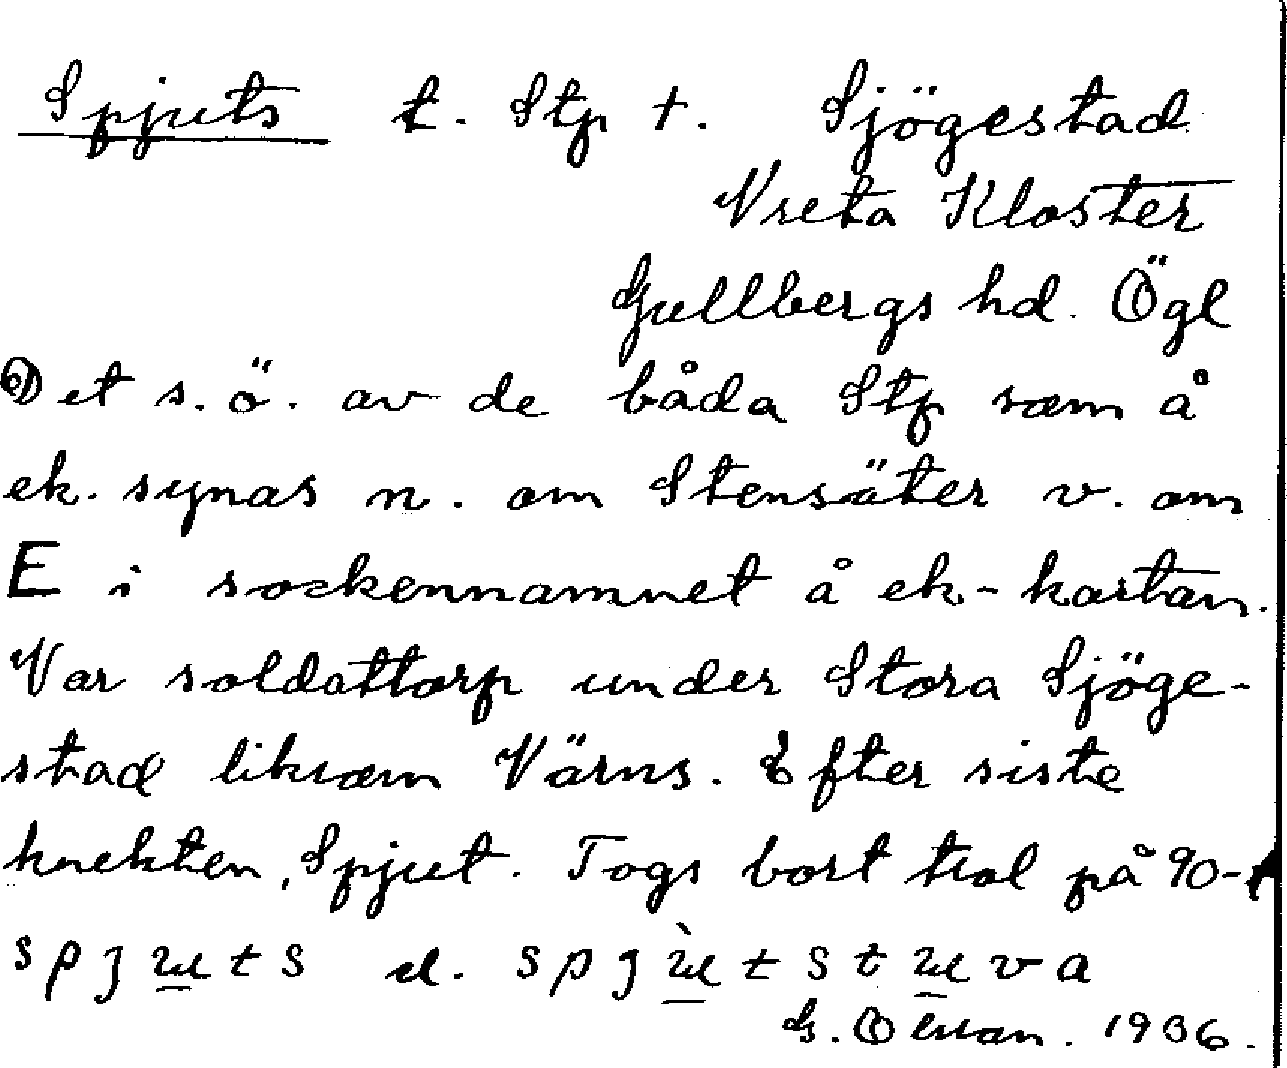 Spjuts t. Stp +. Sjögestad
Vreta Kloster
Gullbergs hd. Ögl
Det s.ö. av de båda Stp som å
ek. synas n. om Stensäter v. om
E i sockennamnet å ek-kartan.
Var soldattorp under Stora Sjöge-
stad liksom Värns. Efter siste
knekten, Spjut. Togs bort trol på 90-t
spjuts el. spjùtstuva
G. 1936.